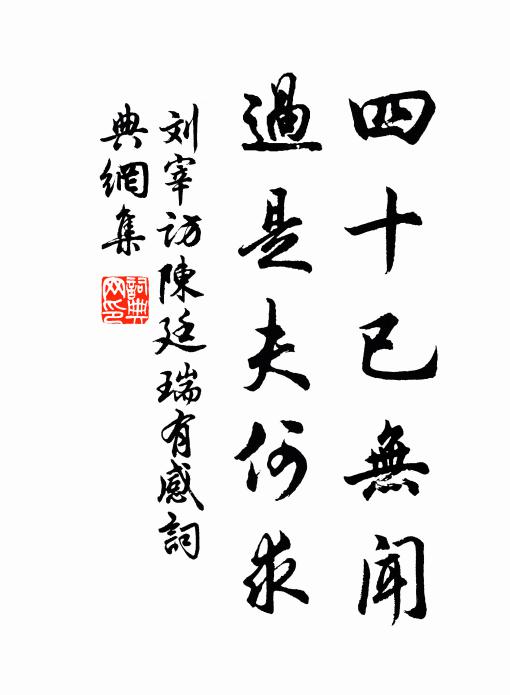 四十已無聞
過是夫何求
刘宰访陳廷瑞有感詞
典網集
詞典网印